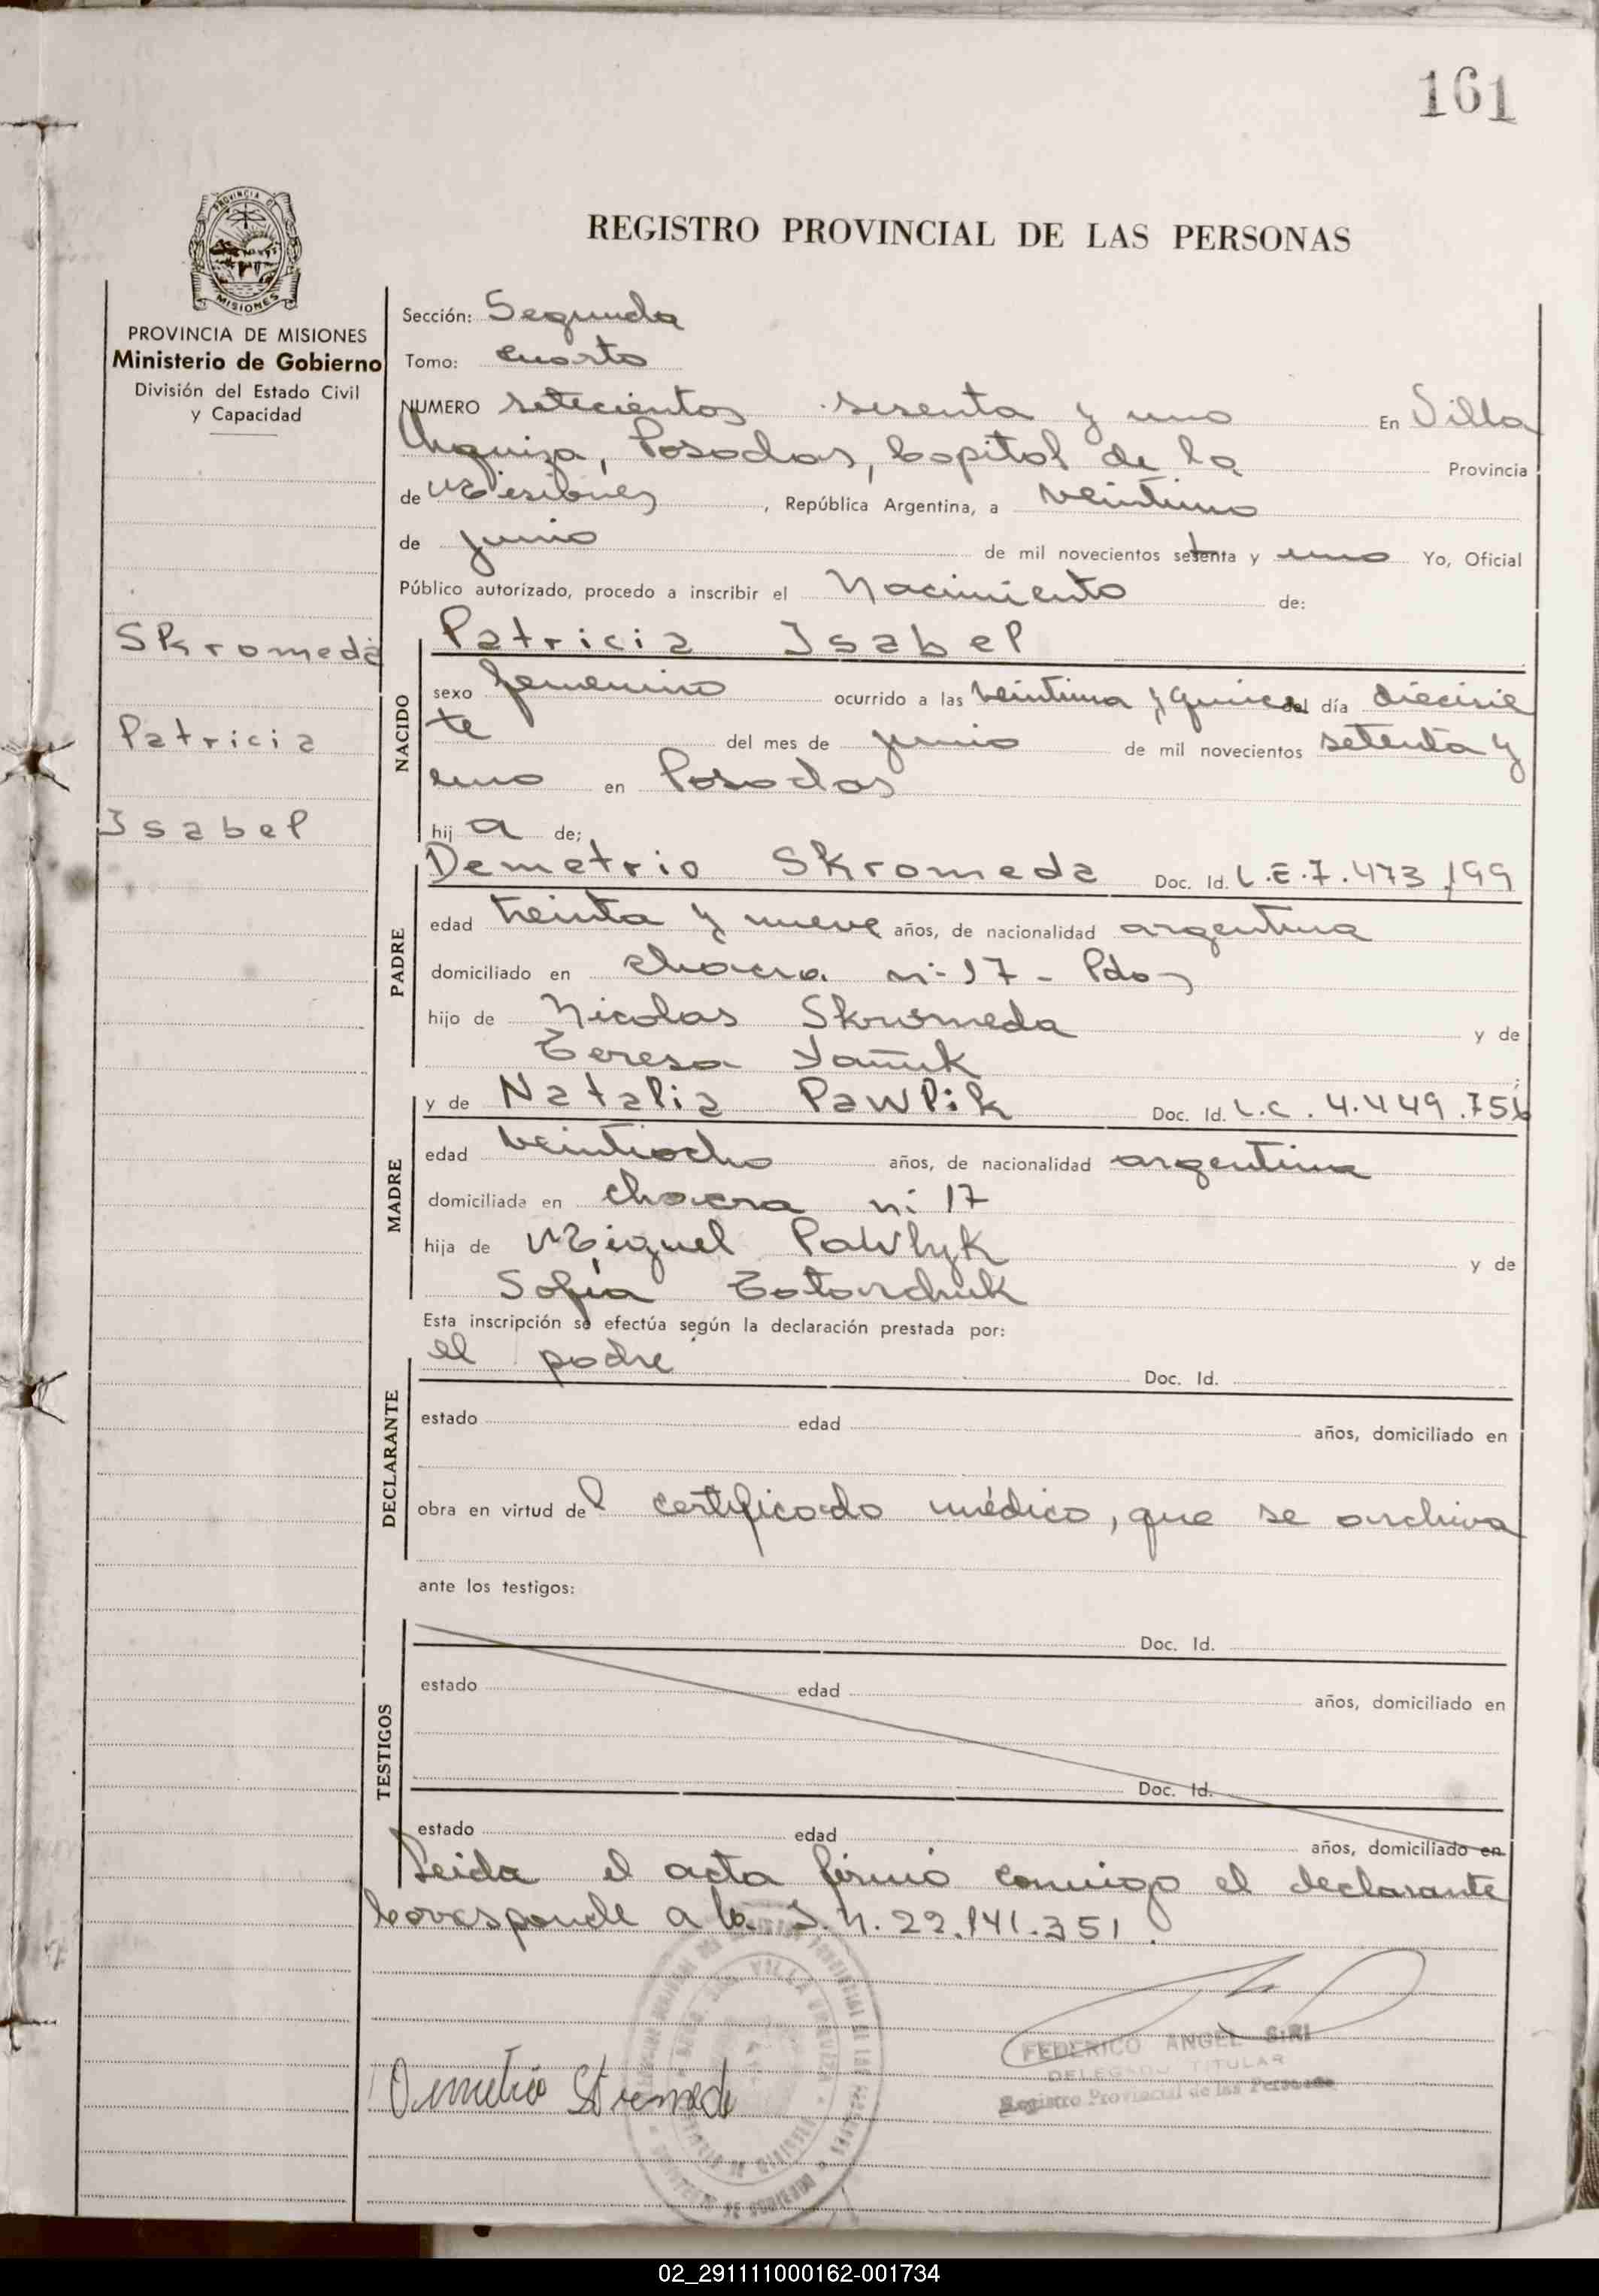 161
PROVINCIA DE MISIONES
MISIONES
PROVINCIA DE MISIONES
Ministerio de Gobierno
División del Estado Civil
y Capacidad
Skromeda
Patricia
Isabel
REGISTRO PROVINCIAL DE LAS PERSONAS
Sección: Segunda
Tomo: cuarto
NUMERO setecientos sesenta y uno En Villa
Urquiza, Posadas, Capital de la Provincia
de Misiones, República Argentina, a veintiuno
de junio de mil novecientos setenta y uno Yo, Oficial
Público autorizado, procedo a inscribir el Nacimiento de:
NACIDO
Patricia Isabel
sexo femenino ocurrido a las veintiuna y quince del día diecisie
te del mes de junio de mil novecientos setenta y
uno en Posadas
hij a de;
PADRE
Demetrio Skromeda Doc. Id. L.E.7.473.199
edad treinta y nueve años, de nacionalidad argentina
domiciliado en chacra nº 17 - Pdas
hijo de Nicolas Skromeda y de
Teresa Yañuk
MADRE
y de Natalia Pawlik Doc. Id. L.C. 4.449.756
edad veintiocho años, de nacionalidad argentina
domiciliada en chacra nº 17
hija de Miguel Pawlyk y de
Sofía Totarchuk
Esta inscripción se efectúa según la declaración prestada por:
DECLARANTE
el padre Doc. Id.
estado edad años, domiciliado en
obra en virtud del certificado médico, que se archiva
ante los testigos:
TESTIGOS
Doc. Id.
estado edad años, domiciliado en
Doc. Id.
estado edad años, domiciliado en
Leida el acta firmó conmigo el declarante
Corresponde a la I.N. 22.141.351.
Demetrio Skromeda
FEDERICO ANGEL SIRI
DELEGADO TITULAR
Registro Provincial de las Personas
02_291111000162-001734